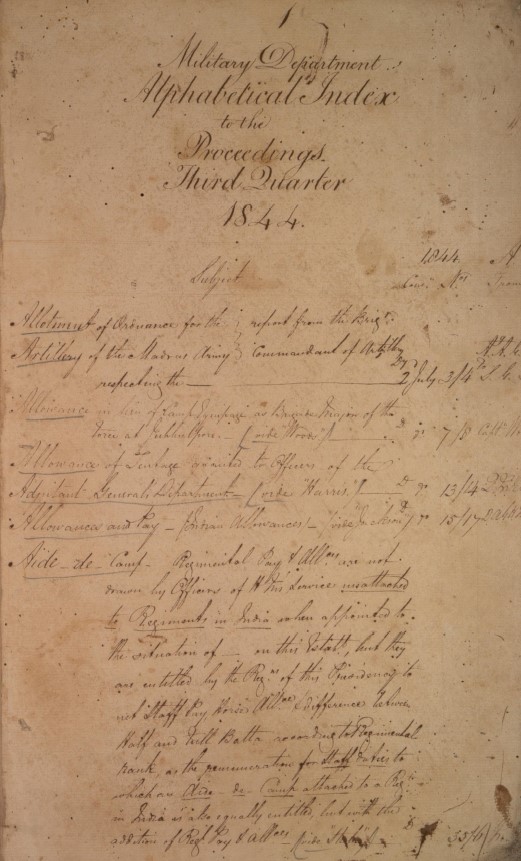 1
Military Department
Alphabetical Index
to the
Proceedings.
Third Quarter
1844.
1844 A
Subject Nos
Allotment of Ordnance for the } report from the Brigr
Artillery of the Madras Army } Commandant of Artilly
respecting the — 2 July 3/4
Allowance in lieu of Camp Equipage as Brigade Major of the
Force at Jubbulpore. (vide Wood) 7/8
Allowance of Tentage granted to Officers of the
Adjutant General's Department — (vide "Harris") — Do 13/14
Allowances and Pay — (vide Jackson) 15/17
Aide-de-Camp — Regimental Pay & Allces are not
drawn by Officers of H Ms Service unattached
to Regiments in India when appointed to
the situation of — on this Establt, but they
are entitled by the Regns of this Presidency to
difference between
Half and Full Batta according to Regimental
rank, as the remuneration for Staff duties to
which an Aide-de-Camp attached to a Regt
in India is also equally entitled, but with the
addition of Regl Pay & Allces